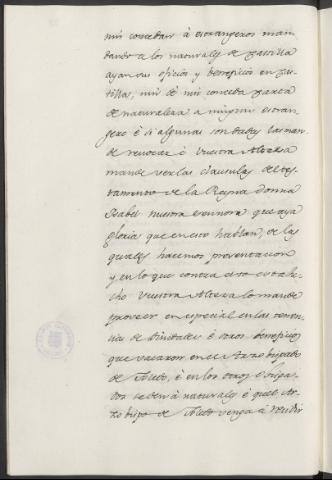 nin concedan à estrangeros man
dando à los naturales de Castilla
ayan sus oficios y beneficios en Cas
tilla, nin dé nin conceda carta
de naturaleza à ningun estran
gero é si algunas son dadas las man
de revocar é Vuestra Alteza
mande ver las clausulas del tes
tamento de la Reyna donna
Isabel nuestra sennora que aya
gloria que en esto hablan, de las
quales hacemos presentacion
y en lo que contra esto estahe
cho Vuestra Alteza lo mande
proveer en especial en las
de é otros beneficios
que vacaron en el Arzobispado
de Toledo, é en los otros obispa
dos se den à naturales é quel Ar
zobispo de Toledo venga à residir